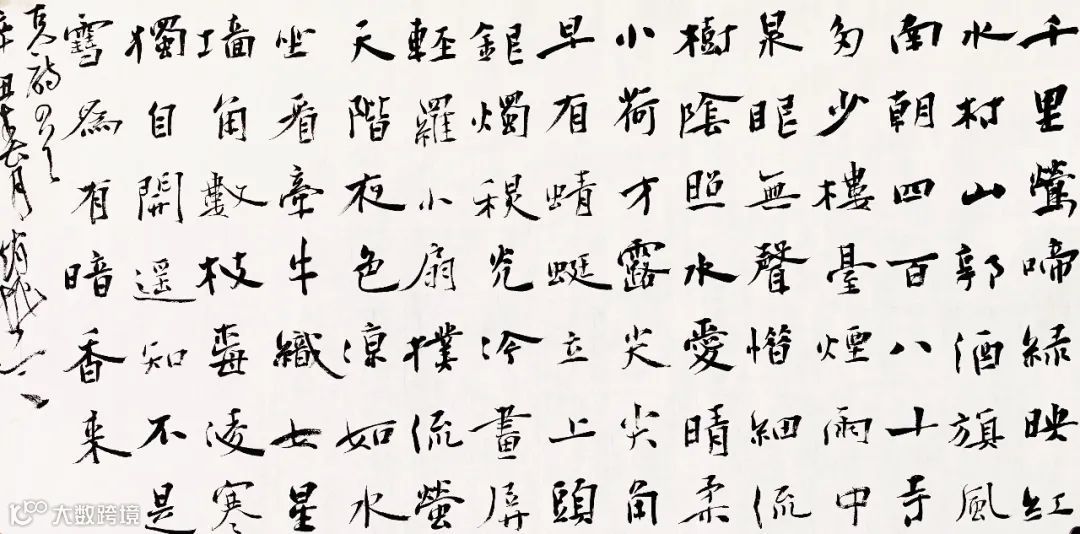 千里鶯啼緑映紅
水村山郭酒旗風
南朝四百八十寺
多少樓臺煙雨中
泉眼無聲惜細流
樹陰照水愛晴柔
小荷才露尖尖角
早有蜻蜓立上頭
銀燭秋光冷畫屏
輕羅小扇撲流螢
天階夜色涼如水
坐看牽牛織女星
墙角數枝梅凌寒
獨自開遥知不是
雪為有暗香來
辛丑春月
大数跨境